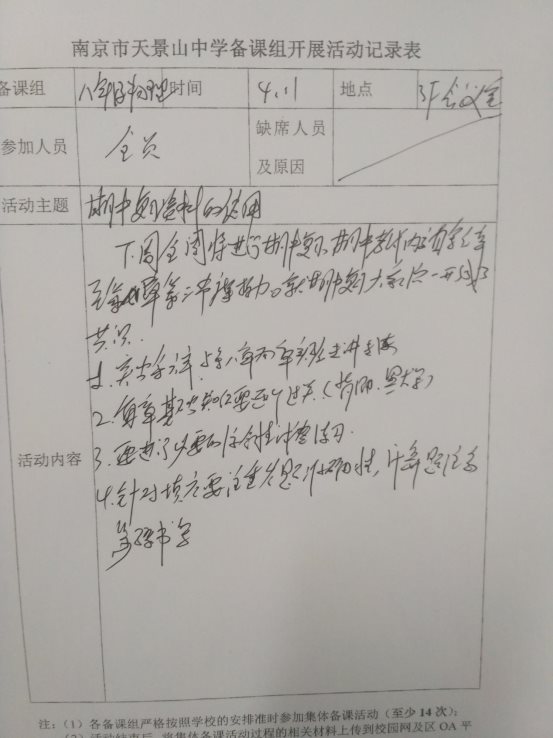 南京市天景山中学备课组开展活动记录表
备课组 八年级物理 时间 4.11 地点 3F会议室
参加人员 全员 缺席人员
及原因
活动主题 期中复习资料的使用
下周全周将进行期中复习,期中考试内容自第六章
至第八章第二节弹力。就期中复习大家统一形成了
共识.
1.
2.每章基础知识要进行过关
3.要进行必要的综合性
4.针对填空要注重 准确性,计算题注意
书写
活动内容
注:(1)各备课组严格按照学校的安排准时参加集体备课活动(至少14次);
(2)活动结束后,将集体备课活动过程的相关材料上传到校园网及区OA平